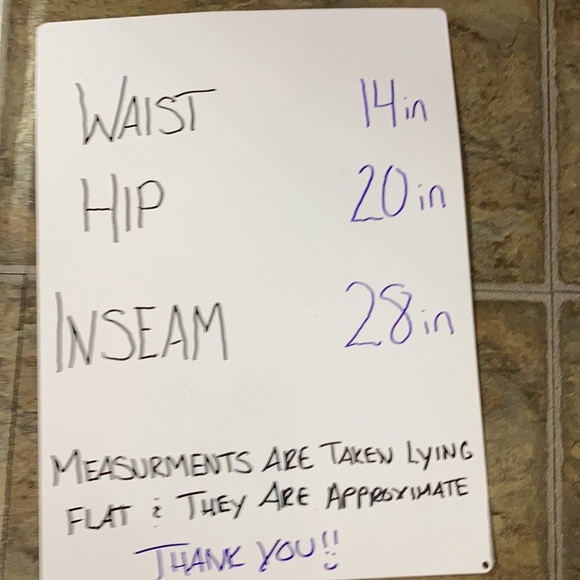 WAIST 14in
HIP 20in
INSEAM 28in
MEASURMENTS ARE TAKEN LYING
FLAT & THEY ARE APPROXIMATE
THANK YOU!!